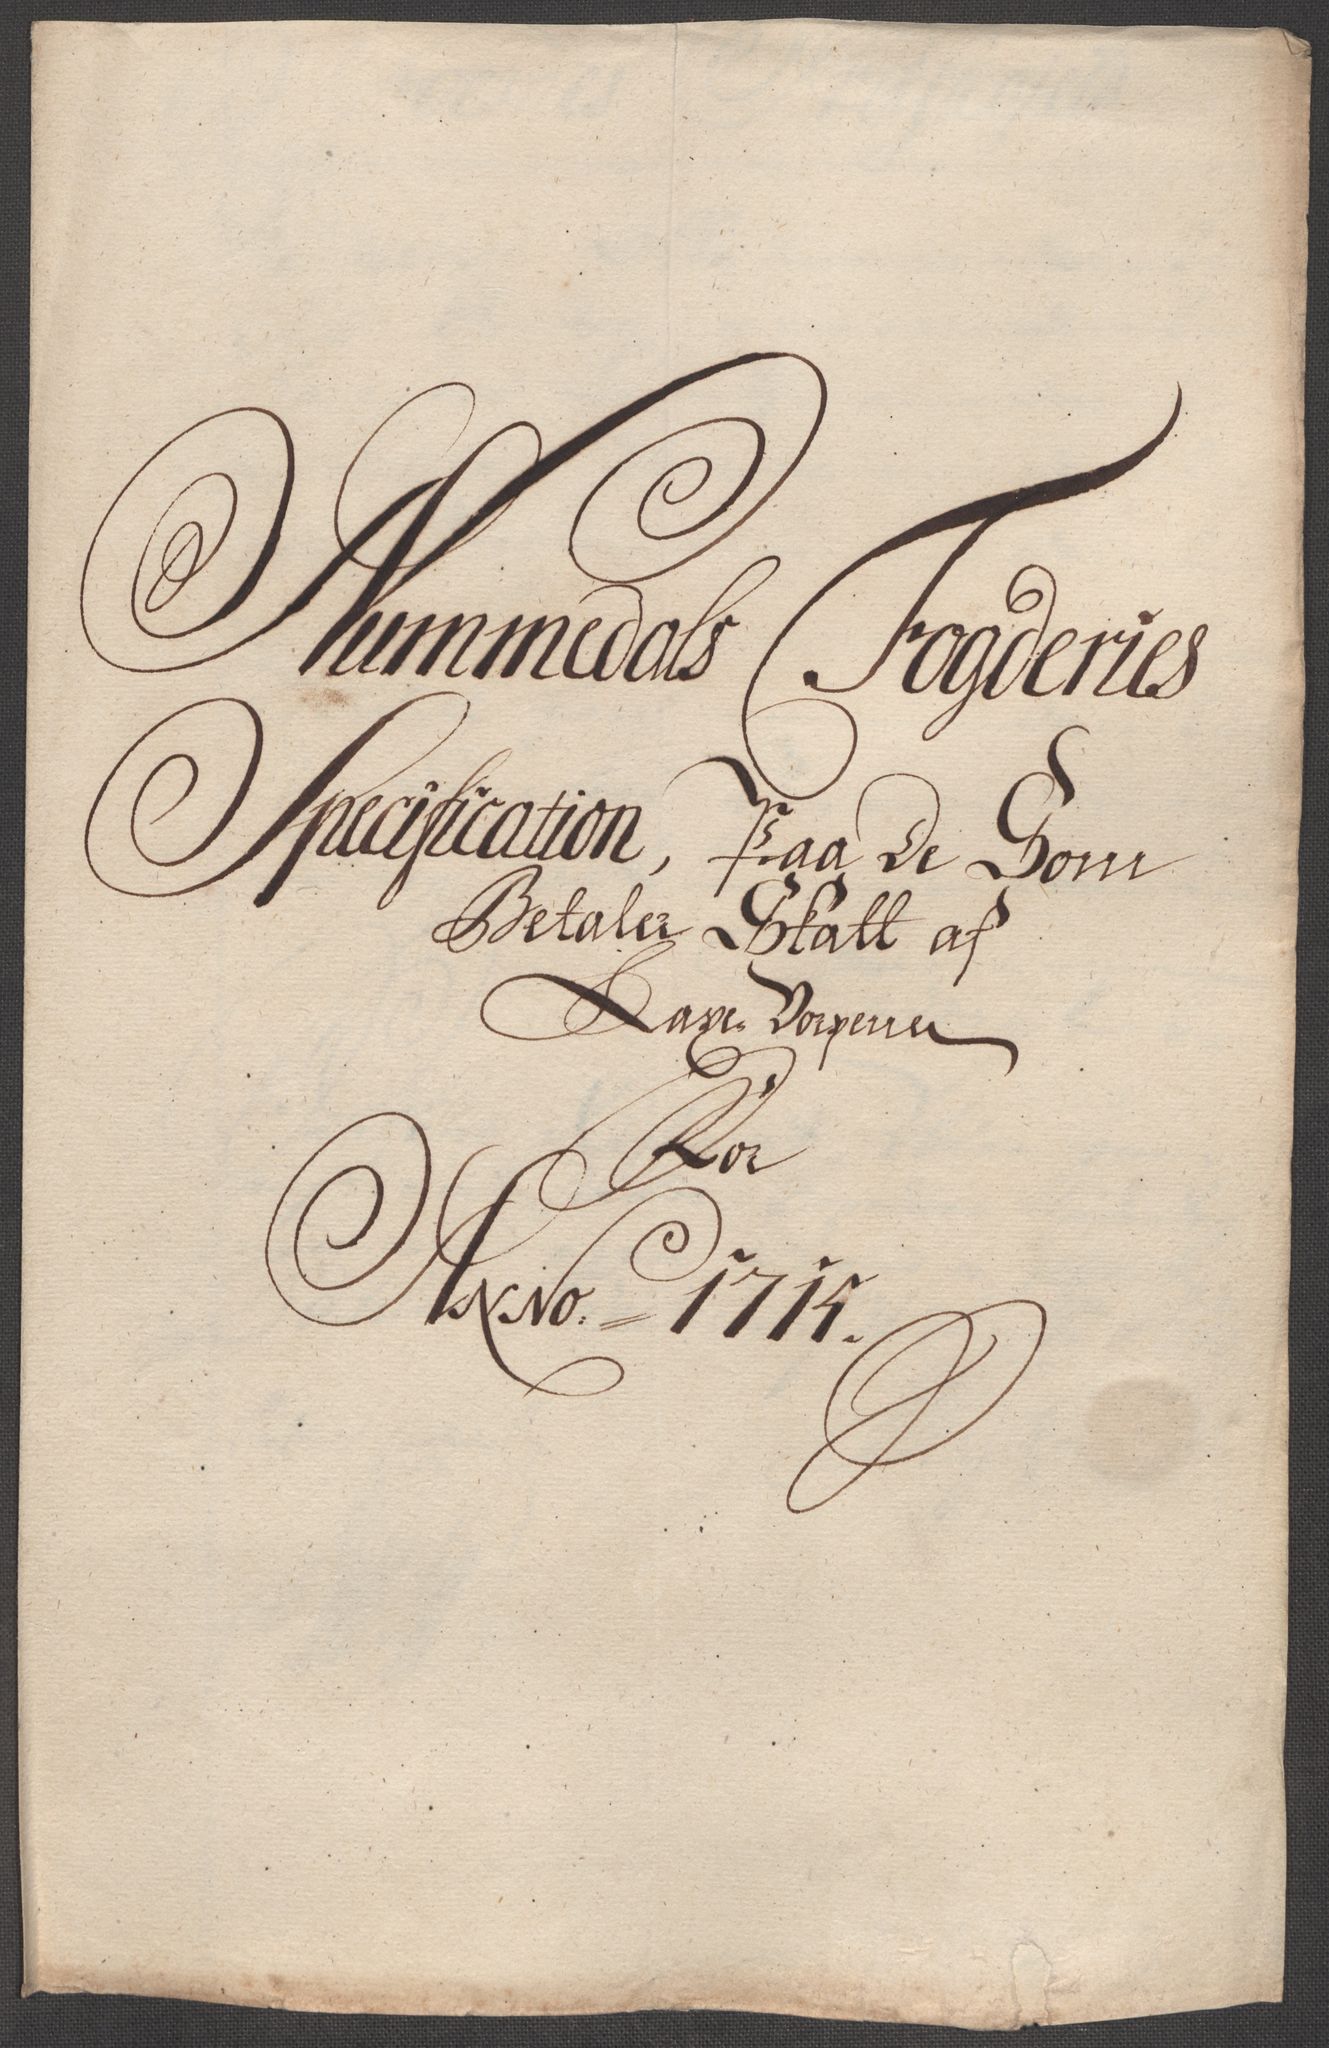 Nummedals Fogderies
Specification, Paa de Som
Betaler Skatt af
Laxe Vorperne
For
Anno. = 1714.